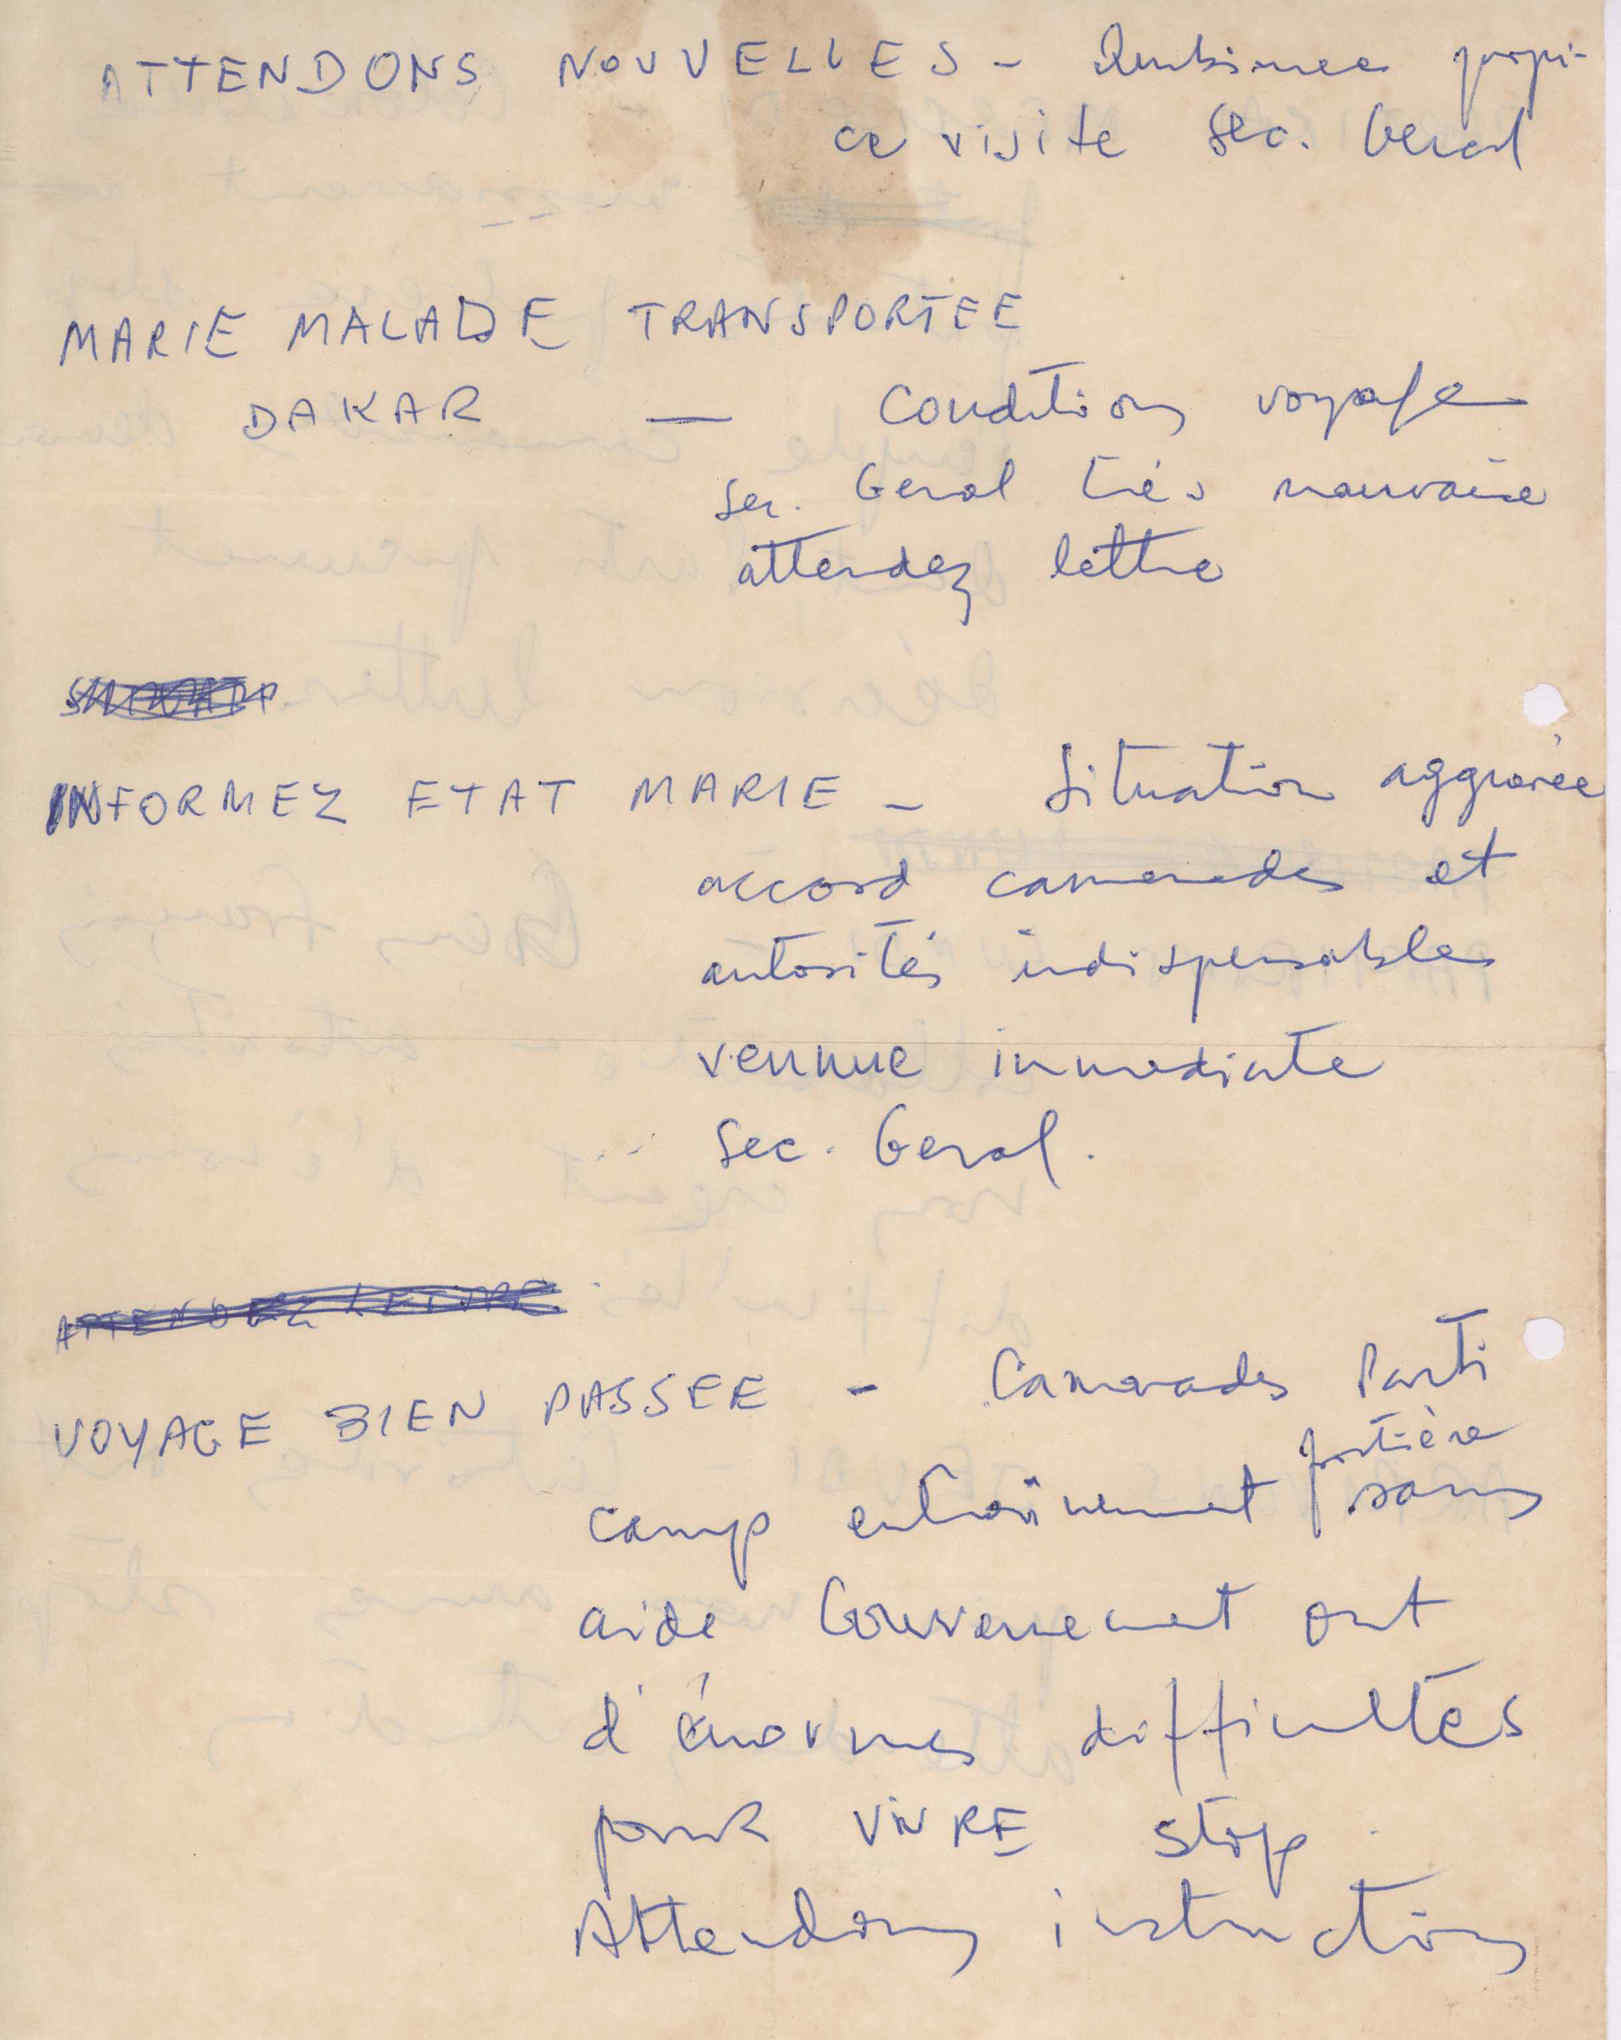 ATTENDONS NOUVELLES - Ambiance propi-
ce visite Sec. Geral
MARIE MALADE TRANSPORTEE
DAKAR — Conditions voyage
Sec. Geral très mauvaise
attendez lettre
INFORMEZ ETAT MARIE - Situation aggravée
accord camarades et
autorités indispensables
vennue inmediate
Sec. Geral.
ATTENDEZ LETTRE
VOYAGE BIEN PASSEE - Camarades Parti
frontière
camp entraînement sans
aide Gouvernement ont
d'énormes difficultés
pour VIVRE stop.
Attendons instructions